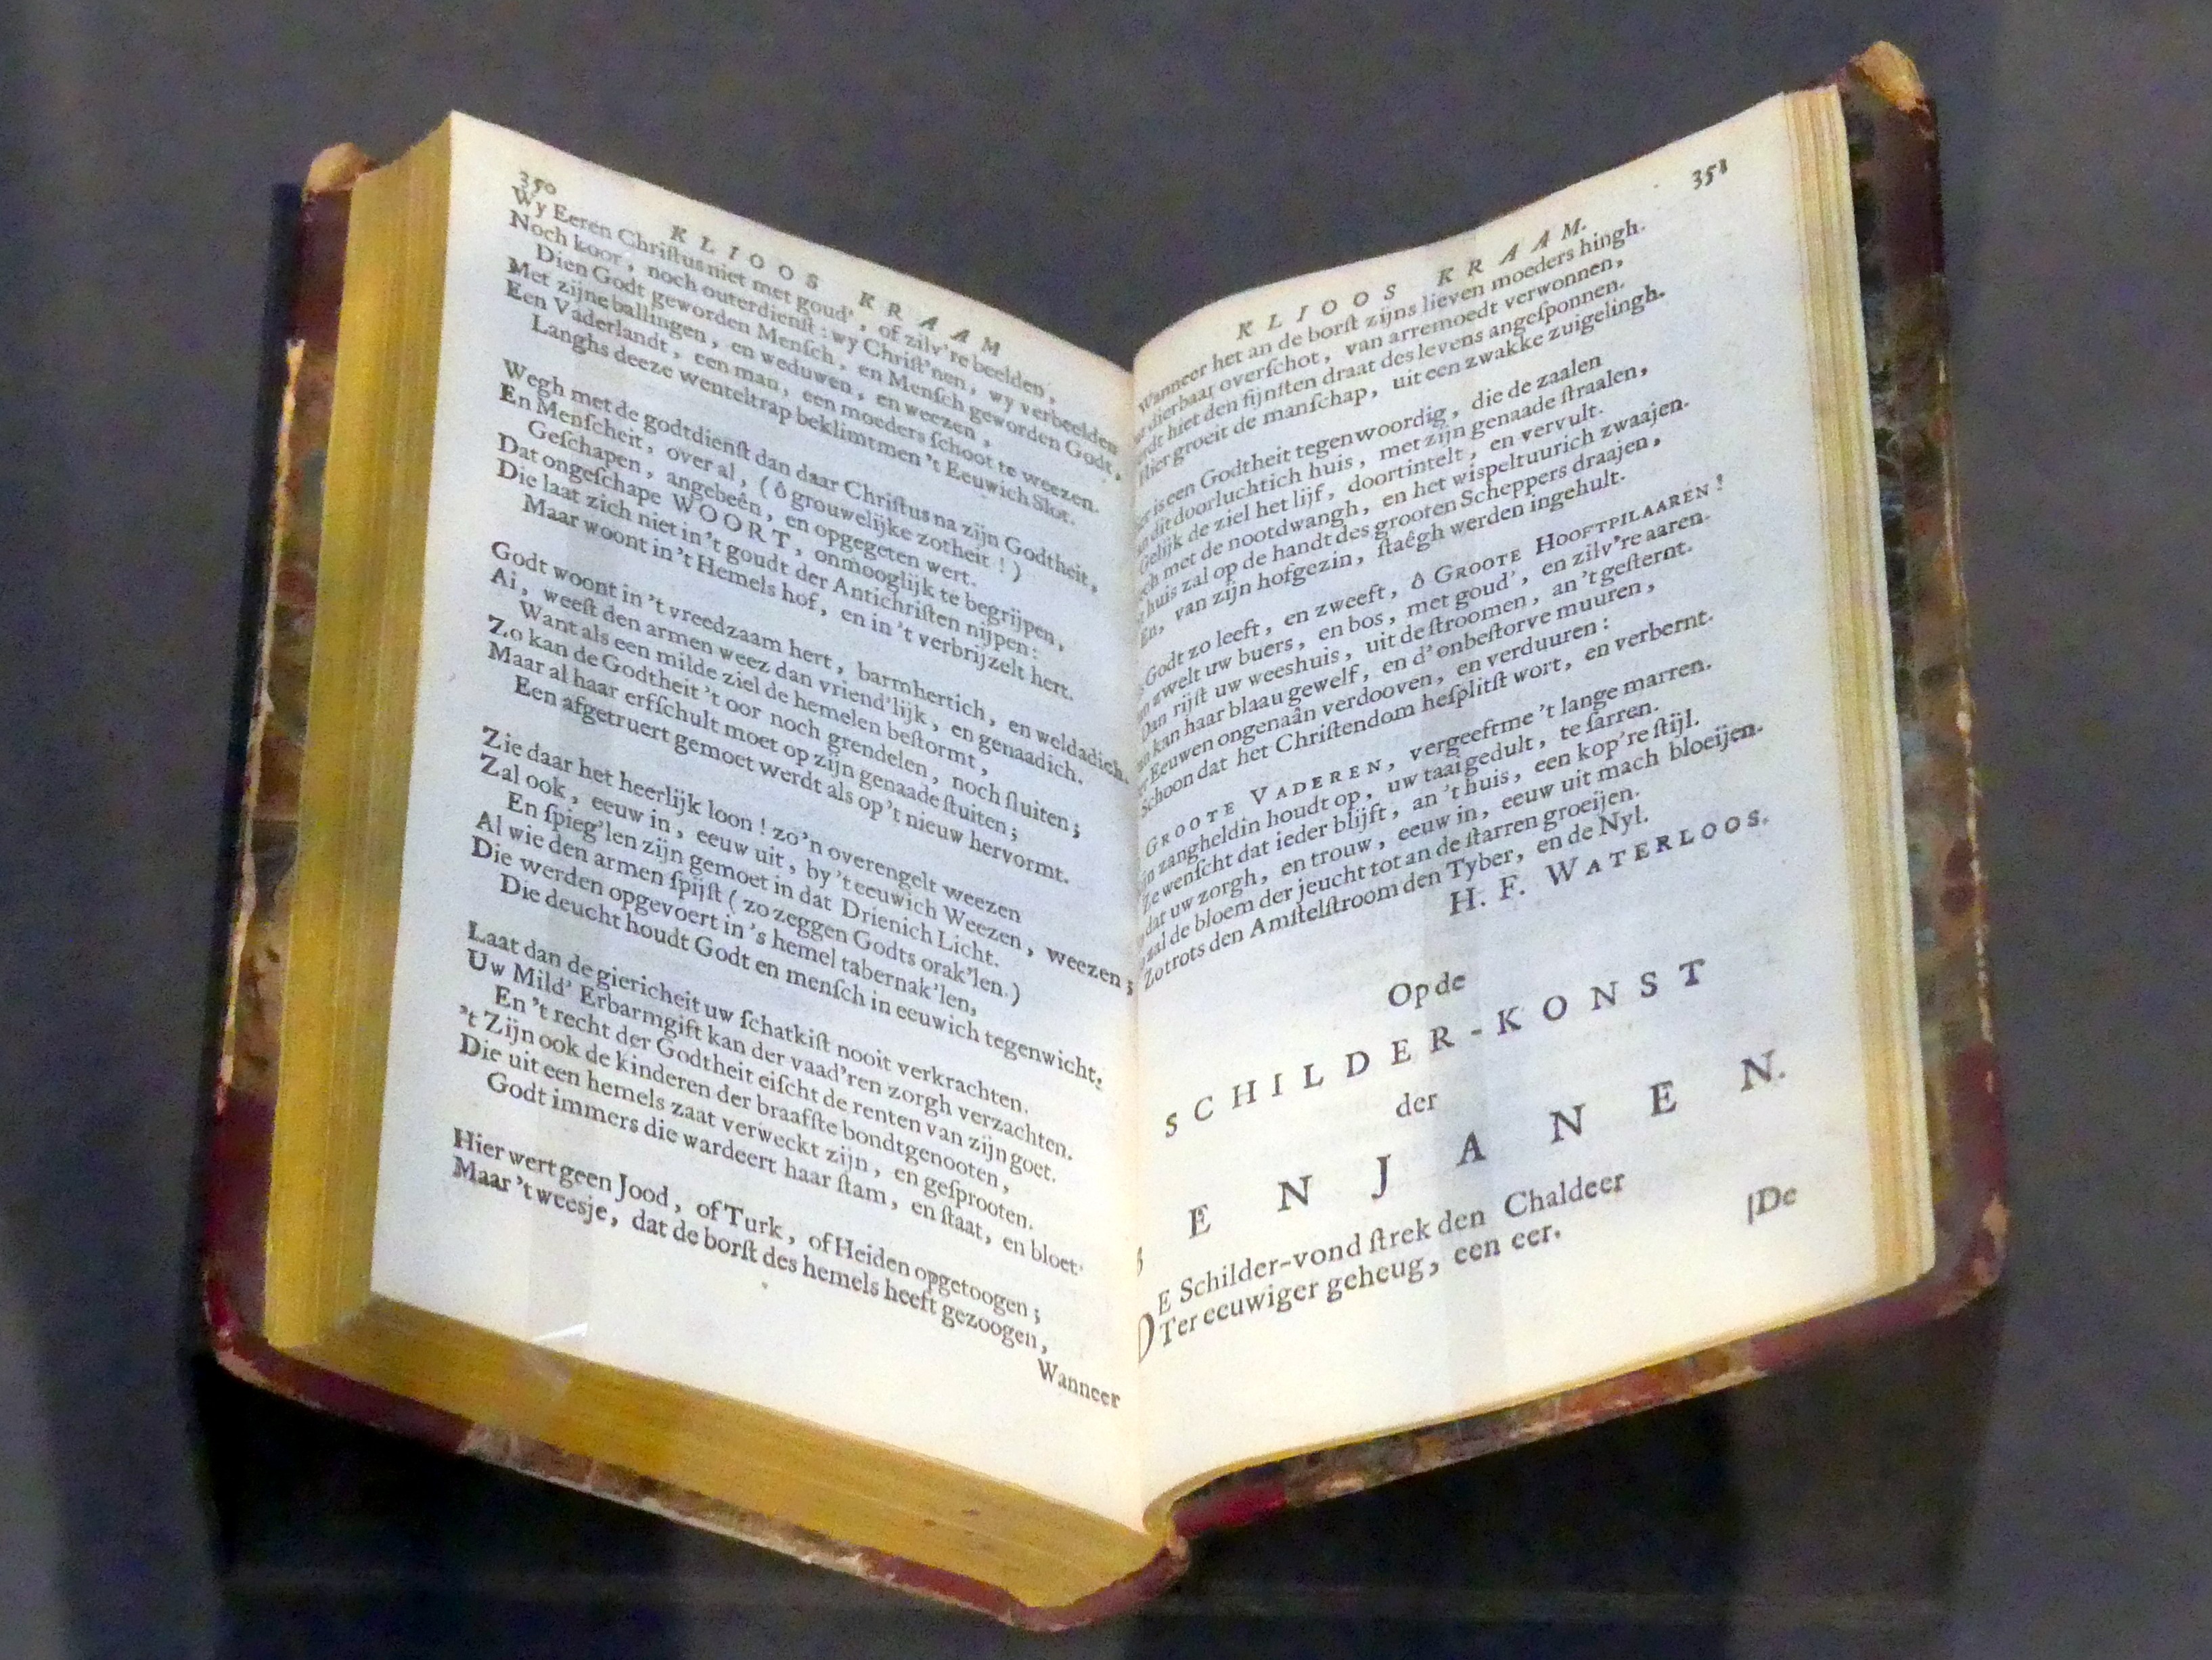 350
KLIOOS KRAAM
Wy Eeren Chriſtus niet met goud', of zilv're beelden,
Noch koor, noch outerdienſt: wy Chriſt'nen, wy verbeelden
Dien Godt geworden Menſch, en Menſch geworden Godt,
Met zijne ballingen, en weduwen, en weezen,
Een Vaderlandt, een man, een moeders ſchoot te weezen.
Langhs deeze wenteltrap beklimtmen 't Eeuwich Slot.
Wegh met de godtdienſt dan daar Chriſtus na zijn Godtheit,
En Menſcheit, over al, (ô grouwelijke zotheit!)
Geſchapen, angebeên, en opgegeten wert.
Dat ongeſchape WOORT, onmooglijk te begrijpen,
Die laat zich niet in 't goudt der Antichriſten nijpen:
Maar woont in 't Hemels hof, en in 't verbrijzelt hert.
Godt woont in 't vreedzaam hert, barmhertich, en weldadich.
Ai, weeſt den armen weez dan vriend'lijk, en genaadich.
Want als een milde ziel de hemelen beſtormt,
Zo kan de Godtheit 't oor noch grendelen, noch ſluiten;
Maar al haar erfſchult moet op zijn genaade ſtuiten;
Een afgetruert gemoet werdt als op 't nieuw hervormt.
Zie daar het heerlijk loon! zo'n overengelt weezen
Zal ook, eeuw in, eeuw uit, by 't eeuwich Weezen, weezen;
En ſpieg'len zijn gemoet in dat Drienich Licht.
Al wie den armen ſpijſt (zo zeggen Godts orak'len.)
Die werden opgevoert in 's hemel tabernak'len,
Die deucht houdt Godt en menſch in eeuwich tegenwicht.
Laat dan de giericheit uw ſchatkiſt nooit verkrachten.
Uw Mild' Erbarmgift kan der vaad'ren zorgh verzachten.
En 't recht der Godtheit eiſcht de renten van zijn goet.
't Zijn ook de kinderen der braafſte bondtgenooten,
Die uit een hemels zaat verweckt zijn, en geſprooten.
Godt immers die wardeert haar ſtam, en ſtaat, en bloet.
Hier wert geen Jood, of Turk, of Heiden opgetoogen;
Maar 't weesje, dat de borſt des hemels heeft gezoogen,
Wanneer
351
KLIOOS KRAAM.
Wanneer het an de borſt zijns lieven moeders hingh.
dierbaar overſchot, van arremoedt verwonnen,
hiet den fijnſten draat des levens angeſponnen.
Hier groeit de manſchap, uit een zwakke zuigelingh.
is een Godtheit tegenwoordig, die de zaalen
dit doorluchtich huis, met zijn genaade ſtraalen,
Gelijk de ziel het lijf, doortintelt, en vervult.
met de nootdwangh, en het wispeltuurich zwaajen.
huis zal op de handt des grooten Scheppers draajen,
En, van zijn hofgezin, ſtaêgh werden ingehult.
Godt zo leeft, en zweeft, ô GROOTE HOOFTPILAAREN!
zwelt uw buers, en bos, met goud', en zilv're aaren.
Dan rijſt uw weeshuis, uit de ſtroomen, an 't geſternt.
kan haar blaau gewelf, en d'onbeſtorve muuren,
Eeuwen ongenaân verdooven, en verduuren:
Schoon dat het Chriſtendom heſplitſt wort, en verbernt.
GROOTE VADEREN, vergeeftme 't lange marren.
zangheldin houdt op, uw taai gedult, te ſarren.
Ze wenſcht dat ieder blijft, an 't huis, een kop're ſtijl.
dat uw zorgh, en trouw, eeuw in, eeuw uit mach bloeijen.
zal de bloem der jeucht tot an de ſtarren groeijen.
Zo trots den Amſtelſtroom den Tyber, en de Nyl.
H. F. WATERLOOS.
Op de
SCHILDER-KONST
der
BENJANEN.
DE Schilder-vond ſtrek den Chaldeer
Ter eeuwiger geheug, een eer.
De